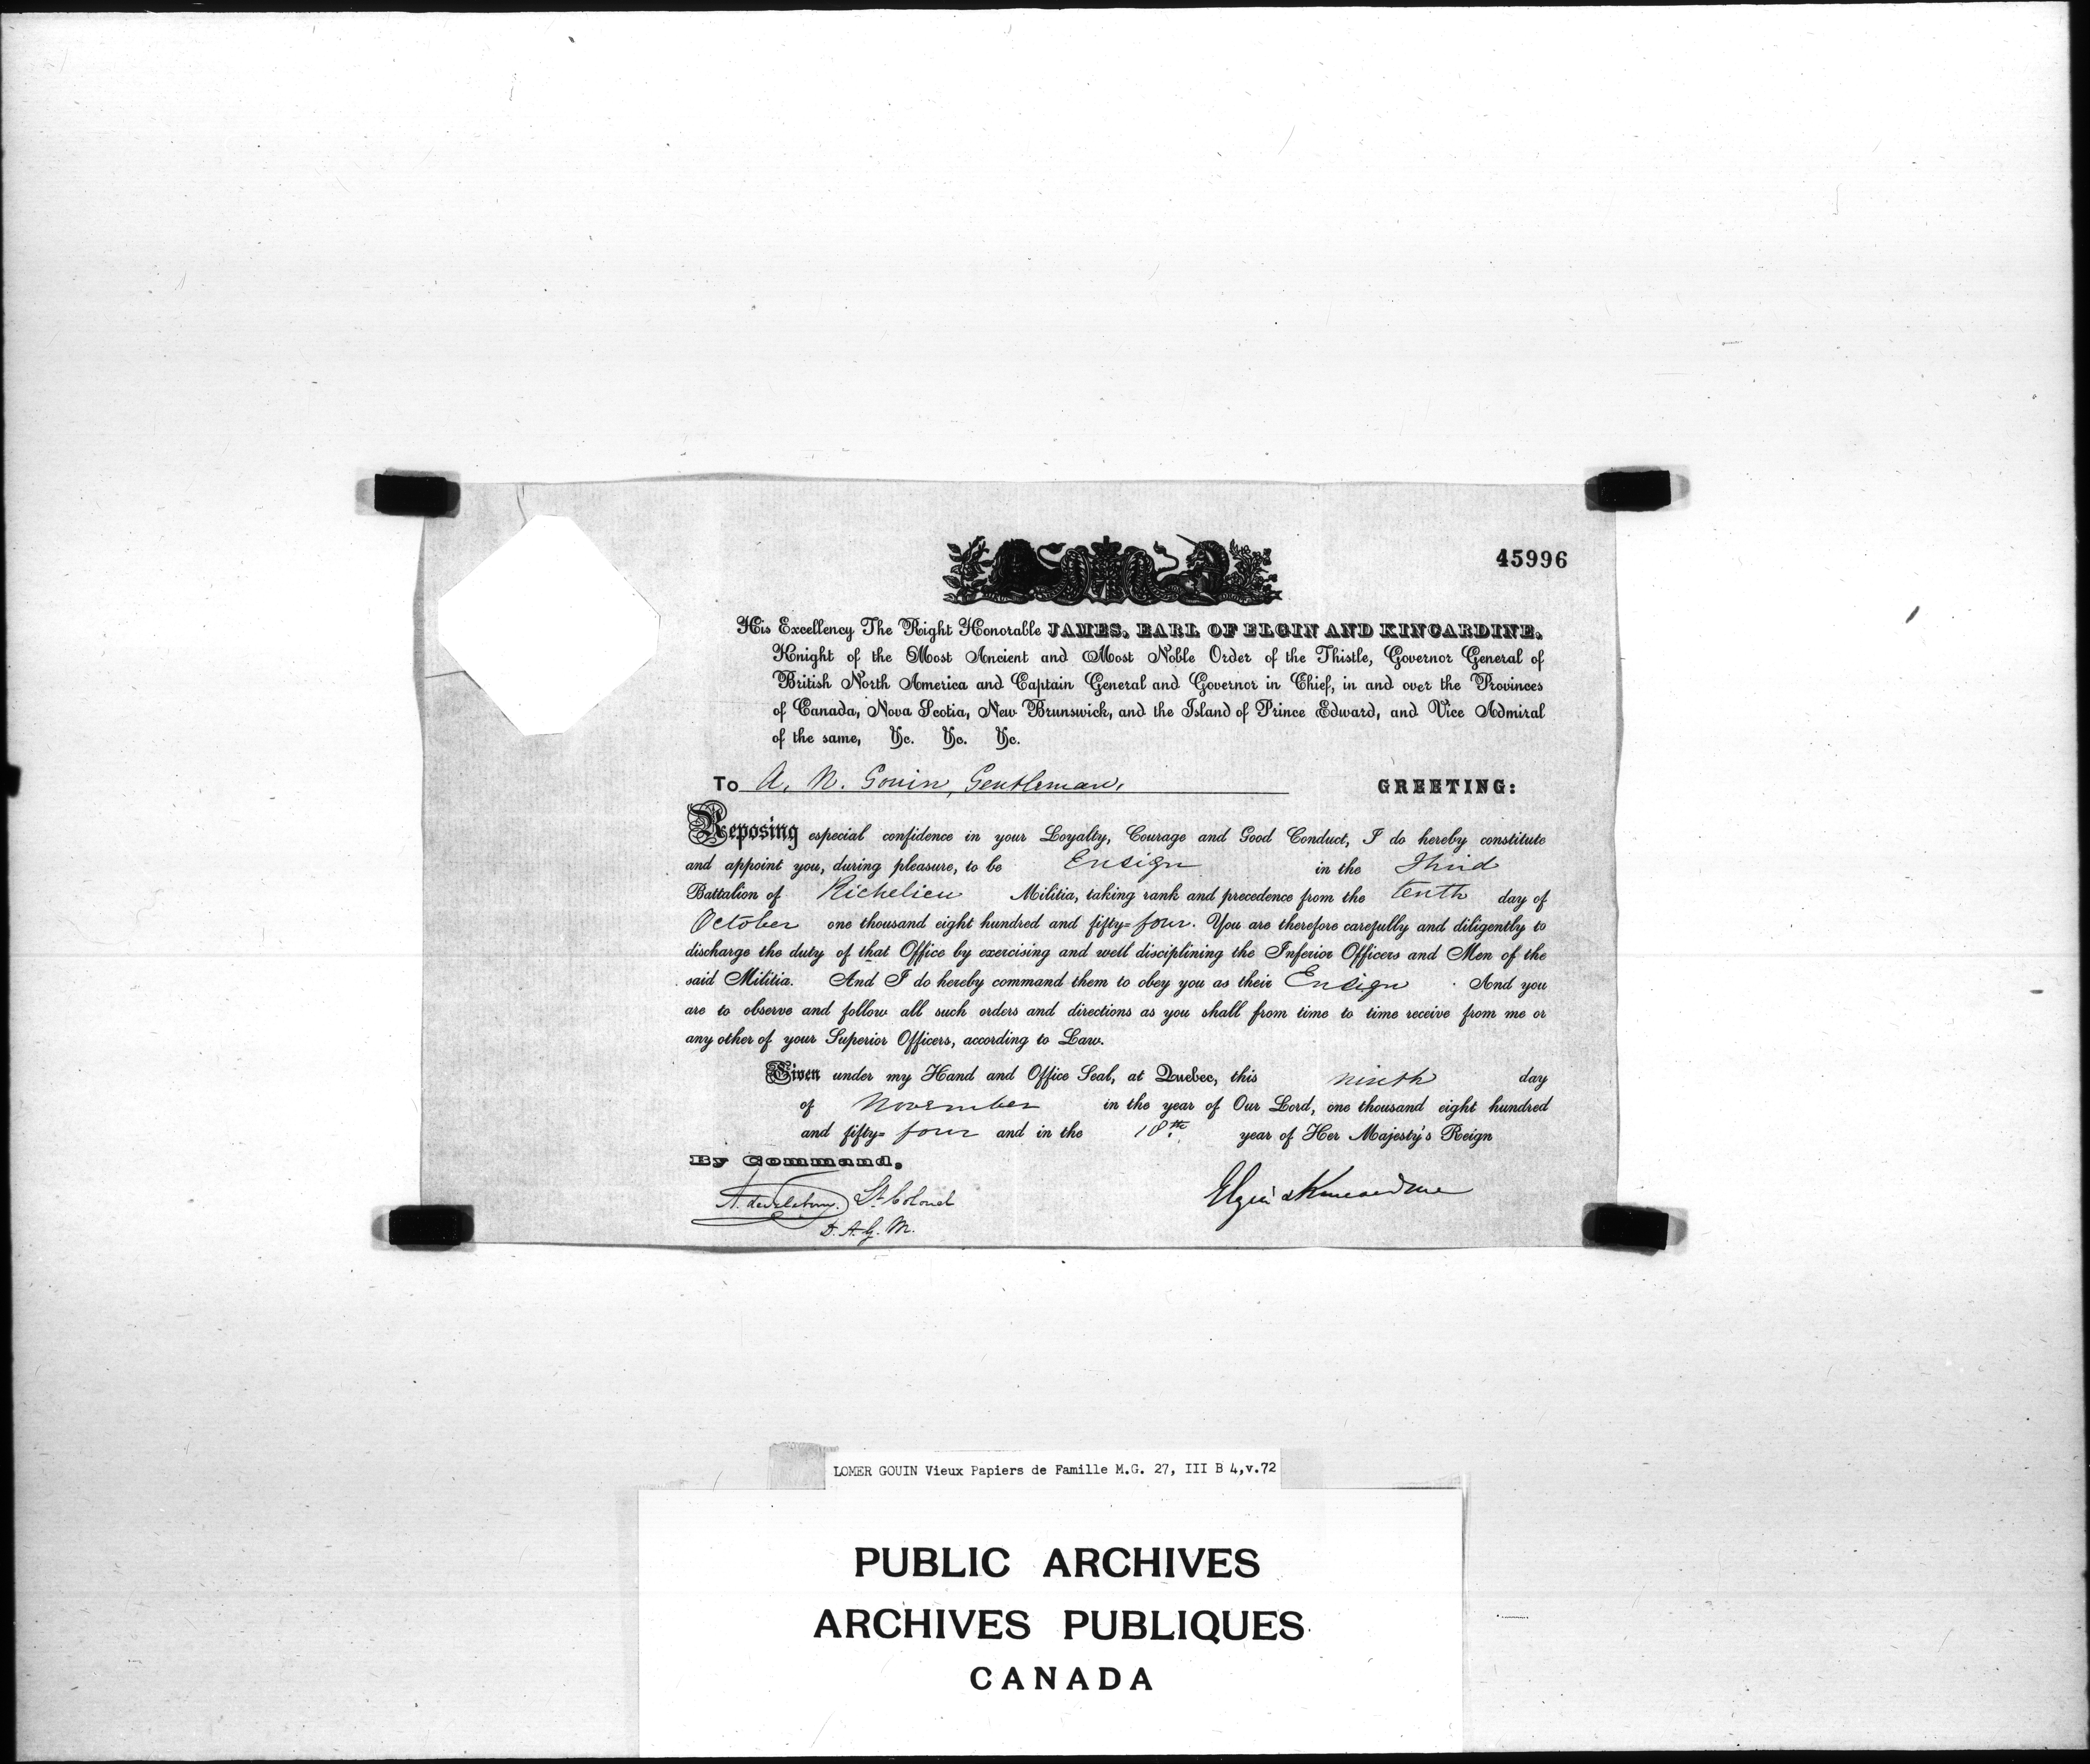 45996
His Excellency The Right Honorable JAMES, EARL OF ELGIN AND KINCARDINE,
Knight of the Most Ancient and Most Noble Order of the Thistle, Governor General of
British North America and Captain General and Governor in Chief, in and over the Provinces
of Canada, Nova Scotia, New Brunswick, and the Island of Prince Edward, and Vice Admiral
of the same, &c. &c. &c.
To A. N. Gouin, Gentleman, GREETING:
Reposing especial confidence in your Loyalty, Courage and Good Conduct, I do hereby constitute
and appoint you, during pleasure, to be Ensign in the Third
Battalion of Richelieu Militia, taking rank and precedence from the tenth day of
October one thousand eight hundred and fifty=four. You are therefore carefully and diligently to
discharge the duty of that Office by exercising and well disciplining the Inferior Officers and Men of the
said Militia. And I do hereby command them to obey you as their Ensign. And you
are to observe and follow all such orders and directions as you shall from time to time receive from me or
any other of your Superior Officers, according to Law.
Given under my Hand and Office Seal, at Quebec, this ninth day
of November in the year of Our Lord, one thousand eight hundred
and fifty=four and in the 18th year of Her Majesty's Reign
By Command,
Lt. Colonel
D. A. G. M.
Elgin & Kincardine
LOMER GOUIN Vieux Papiers de Famille M.G. 27, III B 4,v.72
PUBLIC ARCHIVES
ARCHIVES PUBLIQUES
CANADA